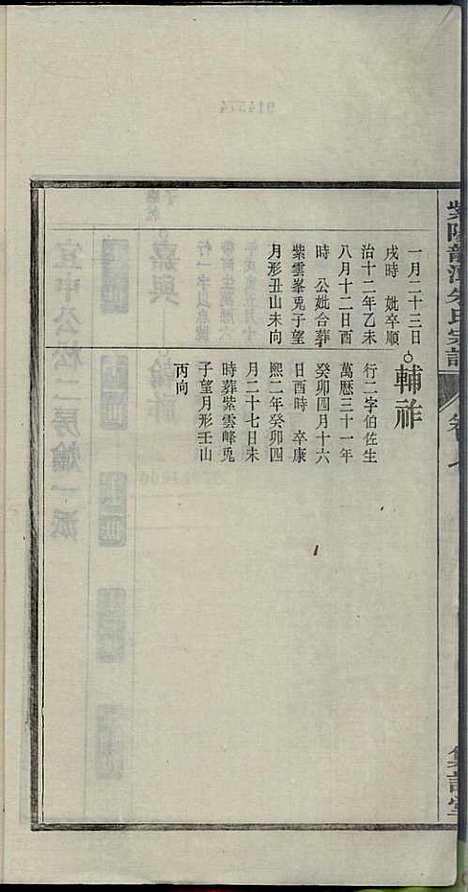 紫陽龍河朱氏宗譜
卷七
一月二十三日
戌時　妣卒順
治十二年乙未
八月十二日酉
時　公妣合葬
紫雲峯兎子望
月形丑山未向
輔祚
行二字伯佐生
萬厯三十一年
癸卯四月十六
日酉時　卒康
熙二年癸卯四
月二十七日未
時葬紫雲峰兎
子望月形壬山
丙向